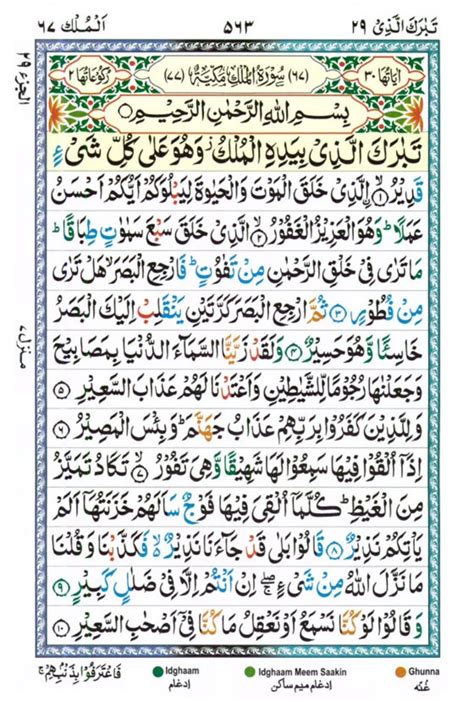 تَبٰرَكَ الَّذِىْ ٢٩
٥٦٣
اَلْمُلْك ٦٧
اٰيَاتُهَا ٣٠
(٦٧) سُوْرَةُ الْمُلْكِ مَكِّيَّةٌ (٧٧)
رُكُوْعَاتُهَا ٢
بِسْمِ اللّٰهِ الرَّحْمٰنِ الرَّحِيْمِ
تَبٰرَكَ الَّذِىْ بِيَدِهِ الْمُلْكُ ز وَهُوَ عَلٰى كُلِّ شَىْءٍ
قَدِيْرُ ۙ﴿١﴾ اۨلَّذِىْ خَلَقَ الْمَوْتَ وَالْحَيٰوةَ لِيَبْلُوَكُمْ اَيُّكُمْ اَحْسَنُ
عَمَلًا ؕ وَهُوَ الْعَزِيْزُ الْغَفُوْرُ ۙ﴿٢﴾ الَّذِىْ خَلَقَ سَبْعَ سَمٰوٰتٍ طِبَاقًا ؕ
مَا تَرٰى فِىْ خَلْقِ الرَّحْمٰنِ مِنْ تَفٰوُتٍ ؕ فَارْجِعِ الْبَصَرَ ۙ هَلْ تَرٰى
مِنْ فُطُوْرٍ ﴿٣﴾ ثُمَّ ارْجِعِ الْبَصَرَ كَرَّتَيْنِ يَنْقَلِبْ اِلَيْكَ الْبَصَرُ
خَاسِئًا وَّهُوَ حَسِيْرٌ ﴿٤﴾ وَلَقَدْ زَيَّنَّا السَّمَآءَ الدُّنْيَا بِمَصَابِيْحَ
وَجَعَلْنٰهَا رُجُوْمًا لِّلشَّيٰطِيْنِ وَاَعْتَدْنَا لَهُمْ عَذَابَ السَّعِيْرِ ﴿٥﴾
وَلِلَّذِيْنَ كَفَرُوْا بِرَبِّهِمْ عَذَابُ جَهَنَّمَ ؕ وَبِئْسَ الْمَصِيْرُ ﴿٦﴾
اِذَاۤ اُلْقُوْا فِيْهَا سَمِعُوْا لَهَا شَهِيْقًا وَّهِىَ تَفُوْرُ ۙ﴿٧﴾ تَكَادُ تَمَيَّزُ
مِنَ الْغَيْظِ ؕ كُلَّمَاۤ اُلْقِىَ فِيْهَا فَوْجٌ سَاَلَهُمْ خَزَنَتُهَاۤ اَلَمْ
يَاْتِكُمْ نَذِيْرٌ ﴿٨﴾ قَالُوْا بَلٰى قَدْ جَآءَنَا نَذِيْرٌ ۙ فَكَذَّبْنَا وَقُلْنَا
مَا نَزَّلَ اللّٰهُ مِنْ شَىْءٍ ۖ ۚ اِنْ اَنْتُمْ اِلَّا فِىْ ضَلٰلٍ كَبِيْرٍ ﴿٩﴾
وَقَالُوْا لَوْ كُنَّا نَسْمَعُ اَوْ نَعْقِلُ مَا كُنَّا فِىْۤ اَصْحٰبِ السَّعِيْرِ ﴿١٠﴾
الجزء ٢٩
منزل ٧
Ghunna
غُنّه
Idghaam Meem Saakin
إدغام ميم ساكن
Idghaam
إدغام
فَاعْتَرَفُوْا بِذَنْۢبِهِمْ ۚ